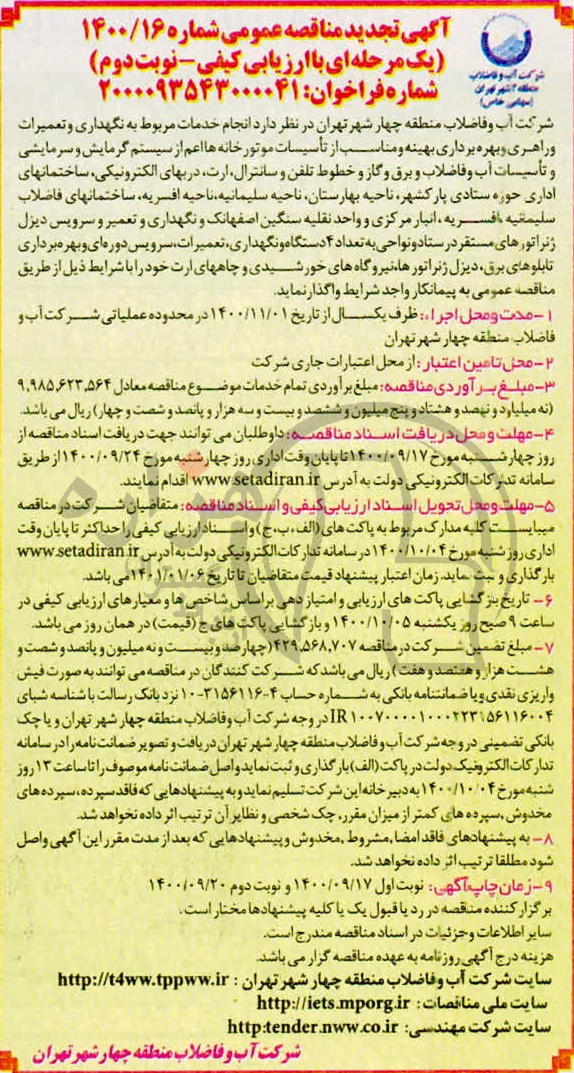 آگهی تجدید مناقصه عمومی شماره ۱۴۰۰/۱۶
(یک مرحله‌ای با ارزیابی کیفی - نوبت دوم)
شماره فراخوان: ۲۰۰۰۰۹۳۵۴۳۰۰۰۰۴۱
شرکت آب و فاضلاب
منطقه ۴ شهر تهران
(سهامی خاص)
شرکت آب و فاضلاب منطقه چهار شهر تهران در نظر دارد انجام خدمات مربوط به نگهداری و تعمیرات
و راهبری و بهره برداری بهینه و مناسب از تأسیسات موتورخانه ها اعم از سیستم گرمایش و سرمایشی
و تأسیسات آب و فاضلاب و برق و گاز و خطوط تلفن و سانترال، ارت، دربهای الکترونیکی، ساختمانهای
اداری حوزه ستادی پارکشهر، ناحیه بهارستان، ناحیه سلیمانیه، ناحیه افسریه، ساختمانهای فاضلاب
سلیمانیه، افسریه، انبار مرکزی و واحد نقلیه سنگین اصفهانک و نگهداری و تعمیر و سرویس دیزل
ژنراتورهای مستقر در ستاد و نواحی به تعداد ۴ دستگاه و نگهداری، تعمیرات، سرویس دوره‌ای و بهره برداری
تابلوهای برق، دیزل ژنراتورها، نیروگاه های خورشیدی و چاههای ارت خود را با شرایط ذیل از طریق
مناقصه عمومی به پیمانکار واجد شرایط واگذار نماید.
۱- مدت و محل اجراء: ظرف یکسال از تاریخ ۱۴۰۰/۱۱/۰۱ در محدوده عملیاتی شرکت آب و
فاضلاب منطقه چهار شهر تهران
۲- محل تامین اعتبار: از محل اعتبارات جاری شرکت
۳- مبلغ برآوردی مناقصه: مبلغ برآوردی تمام خدمات موضوع مناقصه معادل ۹,۹۸۵,۶۲۳,۵۶۴
(نه میلیارد و نهصد و هشتاد و پنج میلیون و ششصد و بیست و سه هزار و پانصد و شصت و چهار) ریال می باشد.
۴- مهلت و محل دریافت اسناد مناقصه: داوطلبان می توانند جهت دریافت اسناد مناقصه از
روز چهارشنبه مورخ ۱۴۰۰/۰۹/۱۷ تا پایان وقت اداری روز چهارشنبه مورخ ۱۴۰۰/۰۹/۲۴ از طریق
سامانه تدارکات الکترونیکی دولت به آدرس www.setadiran.ir اقدام نمایند.
۵- مهلت و محل تحویل اسناد ارزیابی کیفی و اسناد مناقصه: متقاضیان شرکت در مناقصه
میبایست کلیه مدارک مربوط به پاکت های (الف، ب، ج) و اسناد ارزیابی کیفی را حداکثر تا پایان وقت
اداری روز شنبه مورخ ۱۴۰۰/۱۰/۰۴ در سامانه تدارکات الکترونیکی دولت به آدرس www.setadiran.ir
بارگذاری و ثبت نماید. زمان اعتبار پیشنهاد قیمت متقاضیان تا تاریخ ۱۴۰۱/۰۱/۰۶ می باشد.
۶- تاریخ بازگشایی پاکت های ارزیابی و امتیازدهی براساس شاخص ها و معیارهای ارزیابی کیفی در
ساعت ۹ صبح روز یکشنبه ۱۴۰۰/۱۰/۰۵ و بازگشایی پاکت های ج (قیمت) در همان روز می باشد.
۷- مبلغ تضمین شرکت در مناقصه ۴۲۹,۵۶۸,۷۰۷ (چهارصد و بیست و نه میلیون و پانصد و شصت و
هشت هزار و هفتصد و هفت) ریال می باشد که شرکت کنندگان در مناقصه می توانند به صورت فیش
واریزی نقدی و یا ضمانتنامه بانکی به شماره حساب ۴-۳۱۵۶۱۱۶-۱۰ نزد بانک رسالت با شناسه شبای
IR در وجه شرکت آب و فاضلاب منطقه چهار شهر تهران و یا چک
بانکی تضمینی در وجه شرکت آب و فاضلاب منطقه چهار شهر تهران دریافت و تصویر ضمانت نامه را در سامانه
تدارکات الکترونیک دولت در پاکت (الف) بارگذاری و ثبت نماید و اصل ضمانت نامه موصوف را تا ساعت ۱۳ روز
شنبه مورخ ۱۴۰۰/۱۰/۰۴ به دبیرخانه این شرکت تسلیم نماید و به پیشنهادهایی که فاقد سپرده، سپرده های
مخدوش، سپرده های کمتر از میزان مقرر، چک شخصی و نظایر آن ترتیب اثر داده نخواهد شد.
۸- به پیشنهادهای فاقد امضا, مشروط, مخدوش و پیشنهادهایی که بعد از مدت مقرر این آگهی واصل
شود مطلقا ترتیب اثر داده نخواهد شد.
۹- زمان چاپ آگهی: نوبت اول ۱۴۰۰/۰۹/۱۷ و نوبت دوم ۱۴۰۰/۰۹/۲۰
برگزار کننده مناقصه در رد یا قبول یک یا کلیه پیشنهادها مختار است.
سایر اطلاعات و جزئیات در اسناد مناقصه مندرج است.
هزینه درج آگهی روزنامه به عهده مناقصه گزار می باشد.
سایت شرکت آب و فاضلاب منطقه چهار شهر تهران : http://t4ww.tppww.ir
سایت ملی مناقصات: http://iets.mporg.ir
سایت شرکت مهندسی: http:tender.nww.co.ir
شرکت آب و فاضلاب منطقه چهار شهر تهران